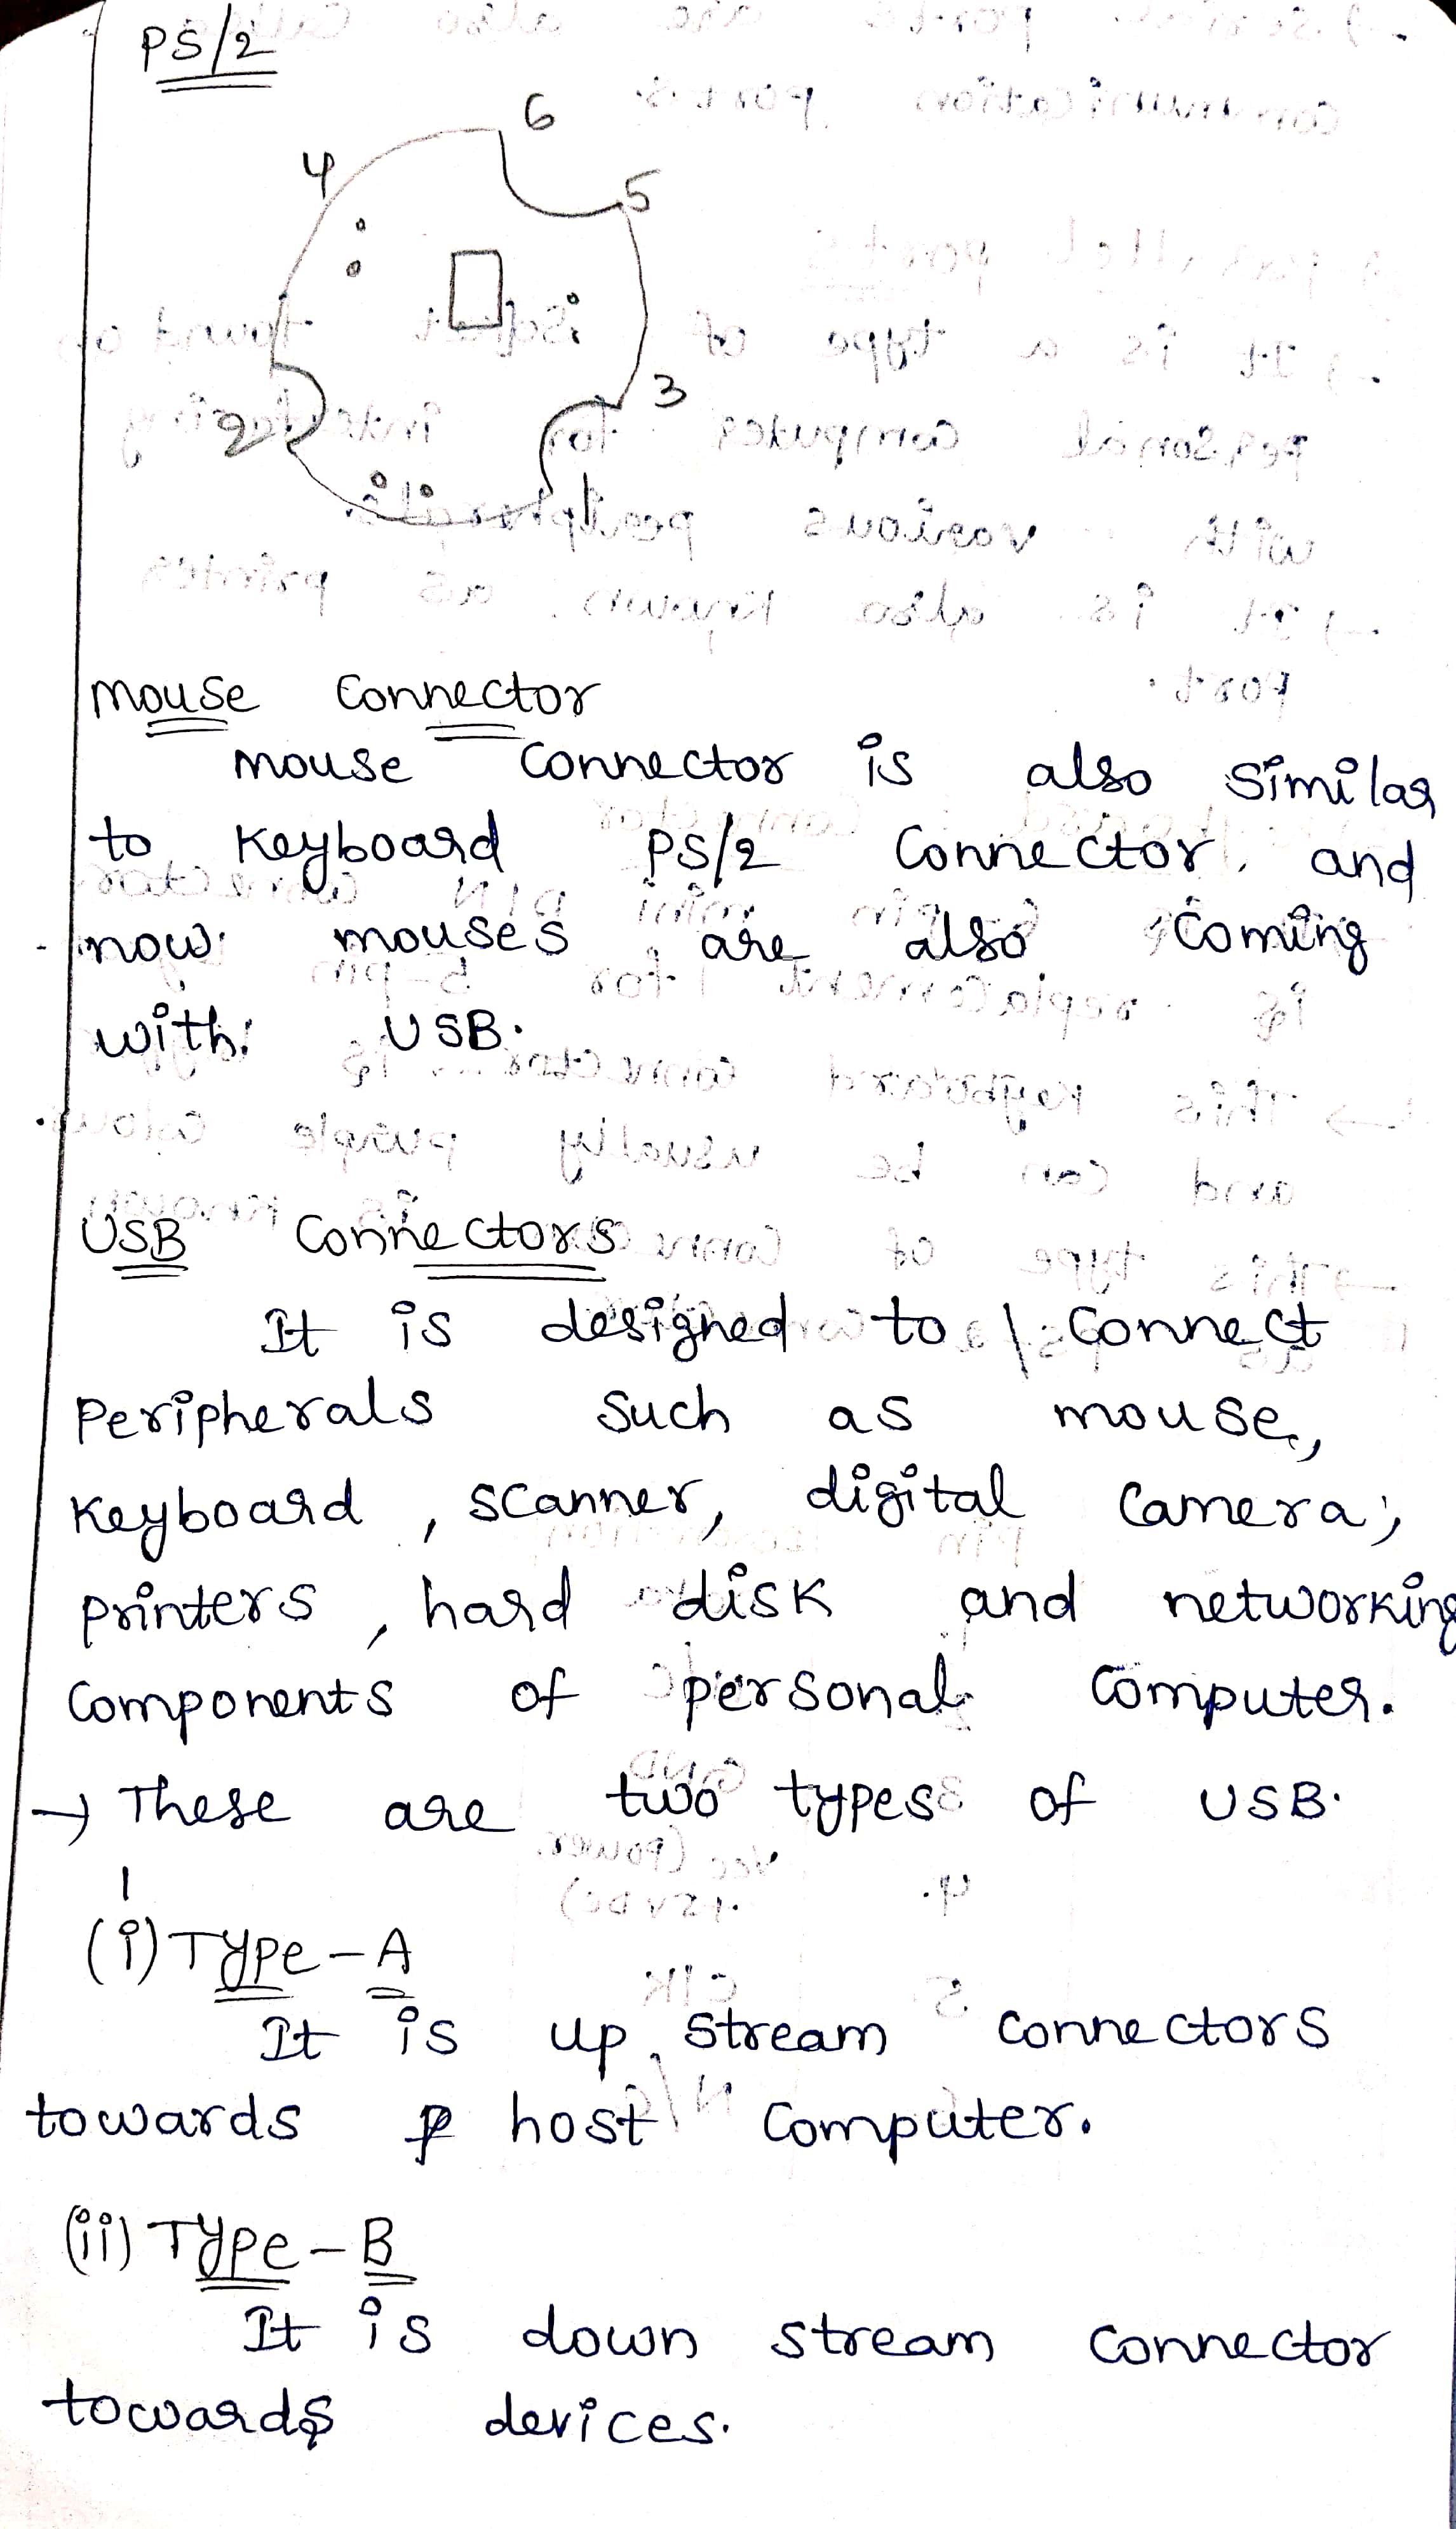 PS/2
6
4
5
3
2
mouse Connector
mouse Connector is also Similar
to Keyboard PS/2 Connector, and
now mouses are also Coming
with USB.
USB Connectors
It is designed to Connect
Peripherals Such as mouse,
Keyboard, Scanner, digital Camera,
printers, hard disk and networking
Components of personal Computer.
→ These are two types of USB.
(i) Type-A
It is up stream Connectors
towards host Computer.
(ii) Type-B
It is down stream Connector
towards devices.